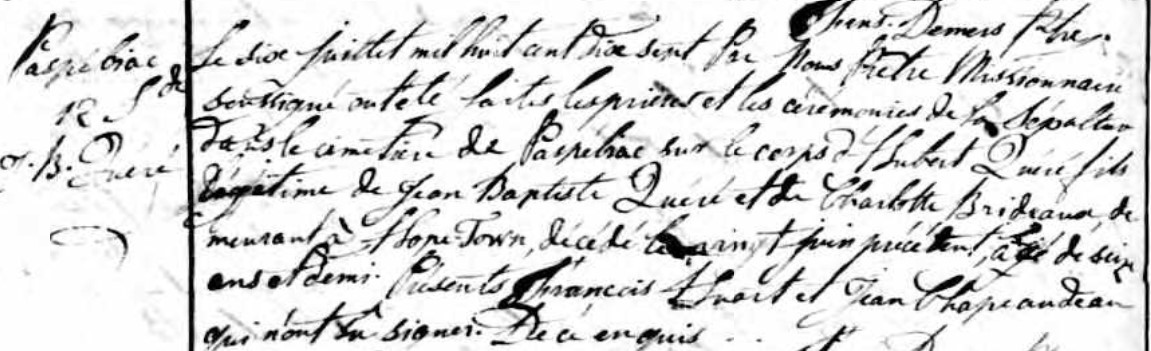 Frans. Demers Ptre.
Paspébiac
de
R S
J. B. Quéré
Le six juillet mil huit cent dix sept Par Nous Prêtre Missionnaire
soussigné ont été faites les prieres et les cérémonies de la Sépulture
dans le cimetière de Paspébiac sur le corps d'Hubert Quéré fils
légitime de Jean Baptiste Quéré et de Charlotte Brideaux de
meurant à Hope-Town, décédé le vingt juin précédent, âgé de seize
ans et demi. Présents François Huart et Jean Chapeaudeau
qui n'ont sû signer. De ce enquis